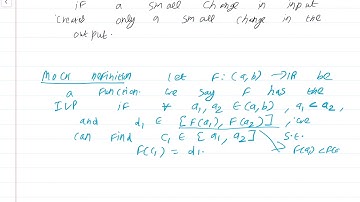 if a small change in input
creates only a small change in the
output.
Mock Definition Let F: (a,b) → IR be
a function. we say F has the
IVP if ∀ a₁, a₂ ∈ (a,b), a₁ < a₂,
and d₁ ∈ [F(a₁), F(a₂)], we
can find c₁ ∈ [a₁, a₂] s.t.
F(c₁) = d₁. F(a₁) < F(